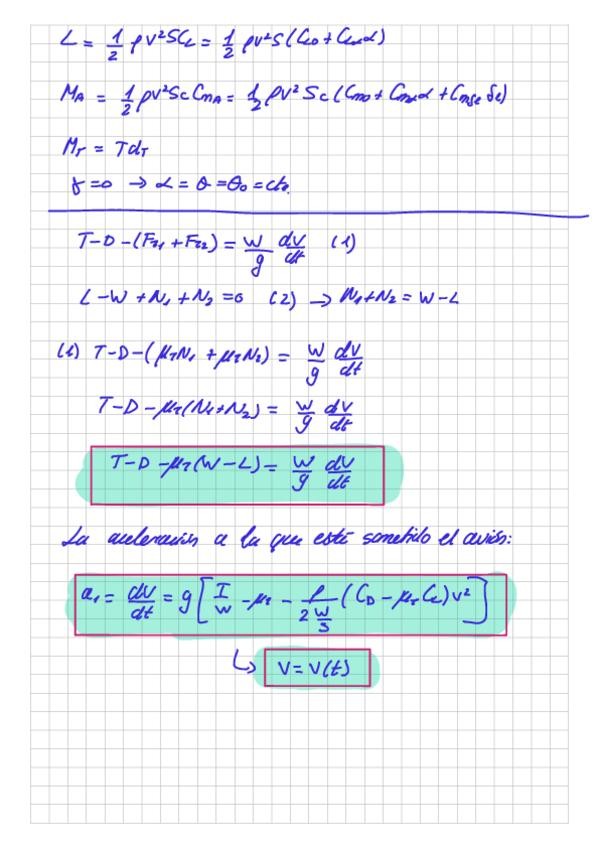 L = 1/2 ρV²SC_L = 1/2 ρV²S(C_L0 + C_Lα α)
M_A = 1/2 ρV²Sc C_mA = 1/2 ρV²Sc(C_m0 + C_mα α + C_mδe δe)
M_T = Td_T
γ=0 → α = θ = θ₀ = cte.
T-D-(F_r1 + F_r2) = W/g dV/dt (1)
L-W+N₁+N₂=0 (2) → N₁+N₂ = W-L
(1) T-D-(μ_r N₁ + μ_r N₂) = W/g dV/dt
T-D-μ_r(N₁+N₂) = W/g dV/dt
T-D-μ_r(W-L) = W/g dV/dt
La aceleración a la que está sometido el avión:
a₁ = dV/dt = g[T/W - μ_r - ρ/(2 W/S) (C_D - μ_r C_L)V²]
↳ V = V(t)